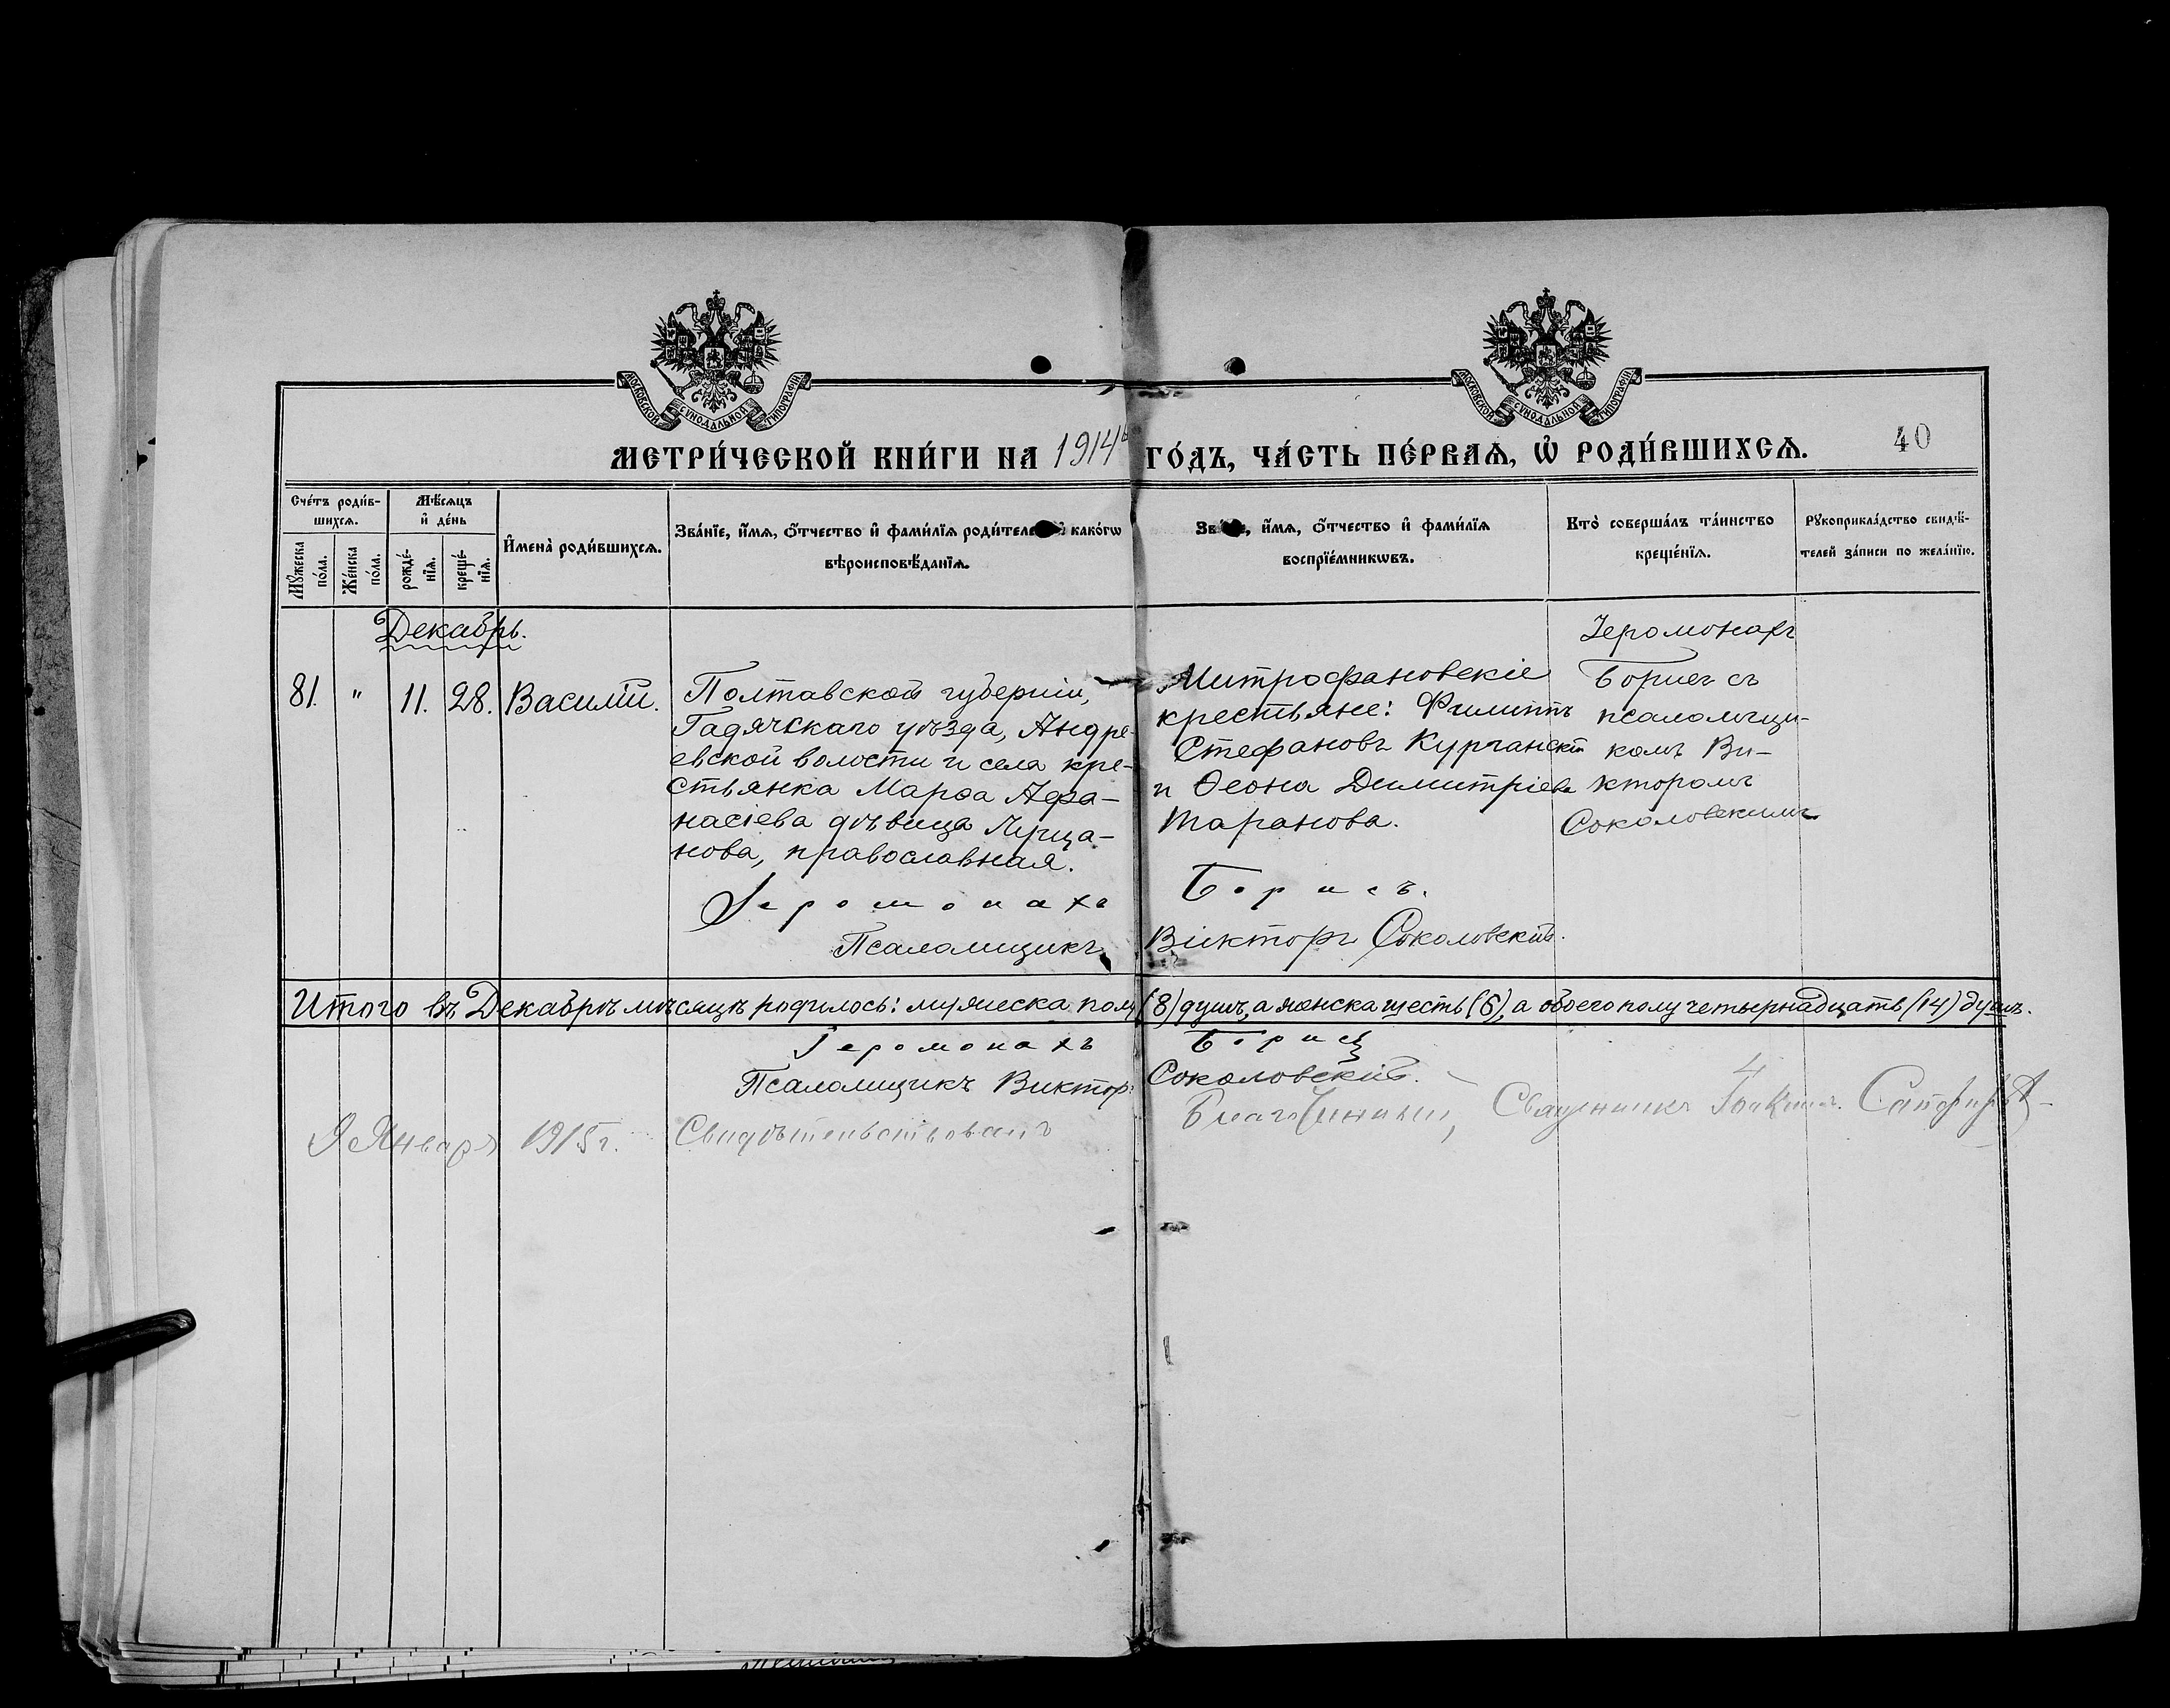 МОСКОВСКОЙ СѴНОДАЛЬНОЙ ТИПОГРАФІИ.
МОСКОВСКОЙ СѴНОДАЛЬНОЙ ТИПОГРАФІИ.
МЕТРИ́ЧЕСКОЙ КНИ́ГИ НА 1914й ГО́ДЪ, ЧА́СТЬ ПЕ́РВАѦ, Ѡ҆ РОДИ́ВШИХСѦ.
40
Сче́тъ роди́в-
шихсѧ.
Мꙋ́жеска по́ла.
Же́нска по́ла.
Мѣ́сѧцъ
и҆ де́нь
рожде́-
нїѧ.
креще́-
нїѧ.
И҆мена̀ роди́вшихсѧ.
Зва́нїе, и҆́мѧ, ѻ҆́тчество и҆ фами́лїѧ роди́теле и҆ како́гѡ
вѣроисповѣ́данїѧ.
Зв е, и҆́мѧ, ѻ҆́тчество и҆ фами́лїѧ
воспрїе́мникѡвъ.
Кто̀ соверша́лъ та́инство
креще́нїѧ.
Рꙋкоприкла́дство свидѣ́-
телей за́писи по жела́нїю.
Декабрь.
81. " 11. 28. Василій.
Полтавской губерніи,
Гадячскаго уѣзда, Андре-
евской волости и села кре-
стьянка Марѳа Афа-
насіева дѣвица
нова, православная.
Митрофановскіе
крестьяне: Филиппъ
Стефановъ Курганскій
и Ѳеона Димитріева
Таранова.
Іеромонахъ
Борисъ съ
псаломщи-
комъ Ви-
кторомъ
Соколовскимъ
Іеромонахъ Борисъ.
Псаломщикъ Викторъ Соколовскій.
Итого въ Декабрѣ мѣсяцѣ родилось: мужеска полу (8) душъ, а женска шесть (6), а обоего полу четырнадцать (14) душъ.
Іеромонахъ Борисъ
Псаломщикъ Викторъ Соколовскій.
Января 1915 г. Свидѣтельствовалъ Благочинный, Священникъ